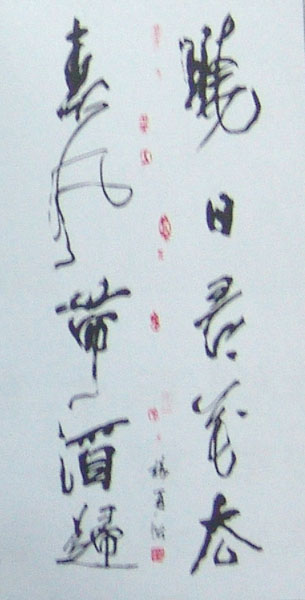 曉日尋花去
春風帶酒歸